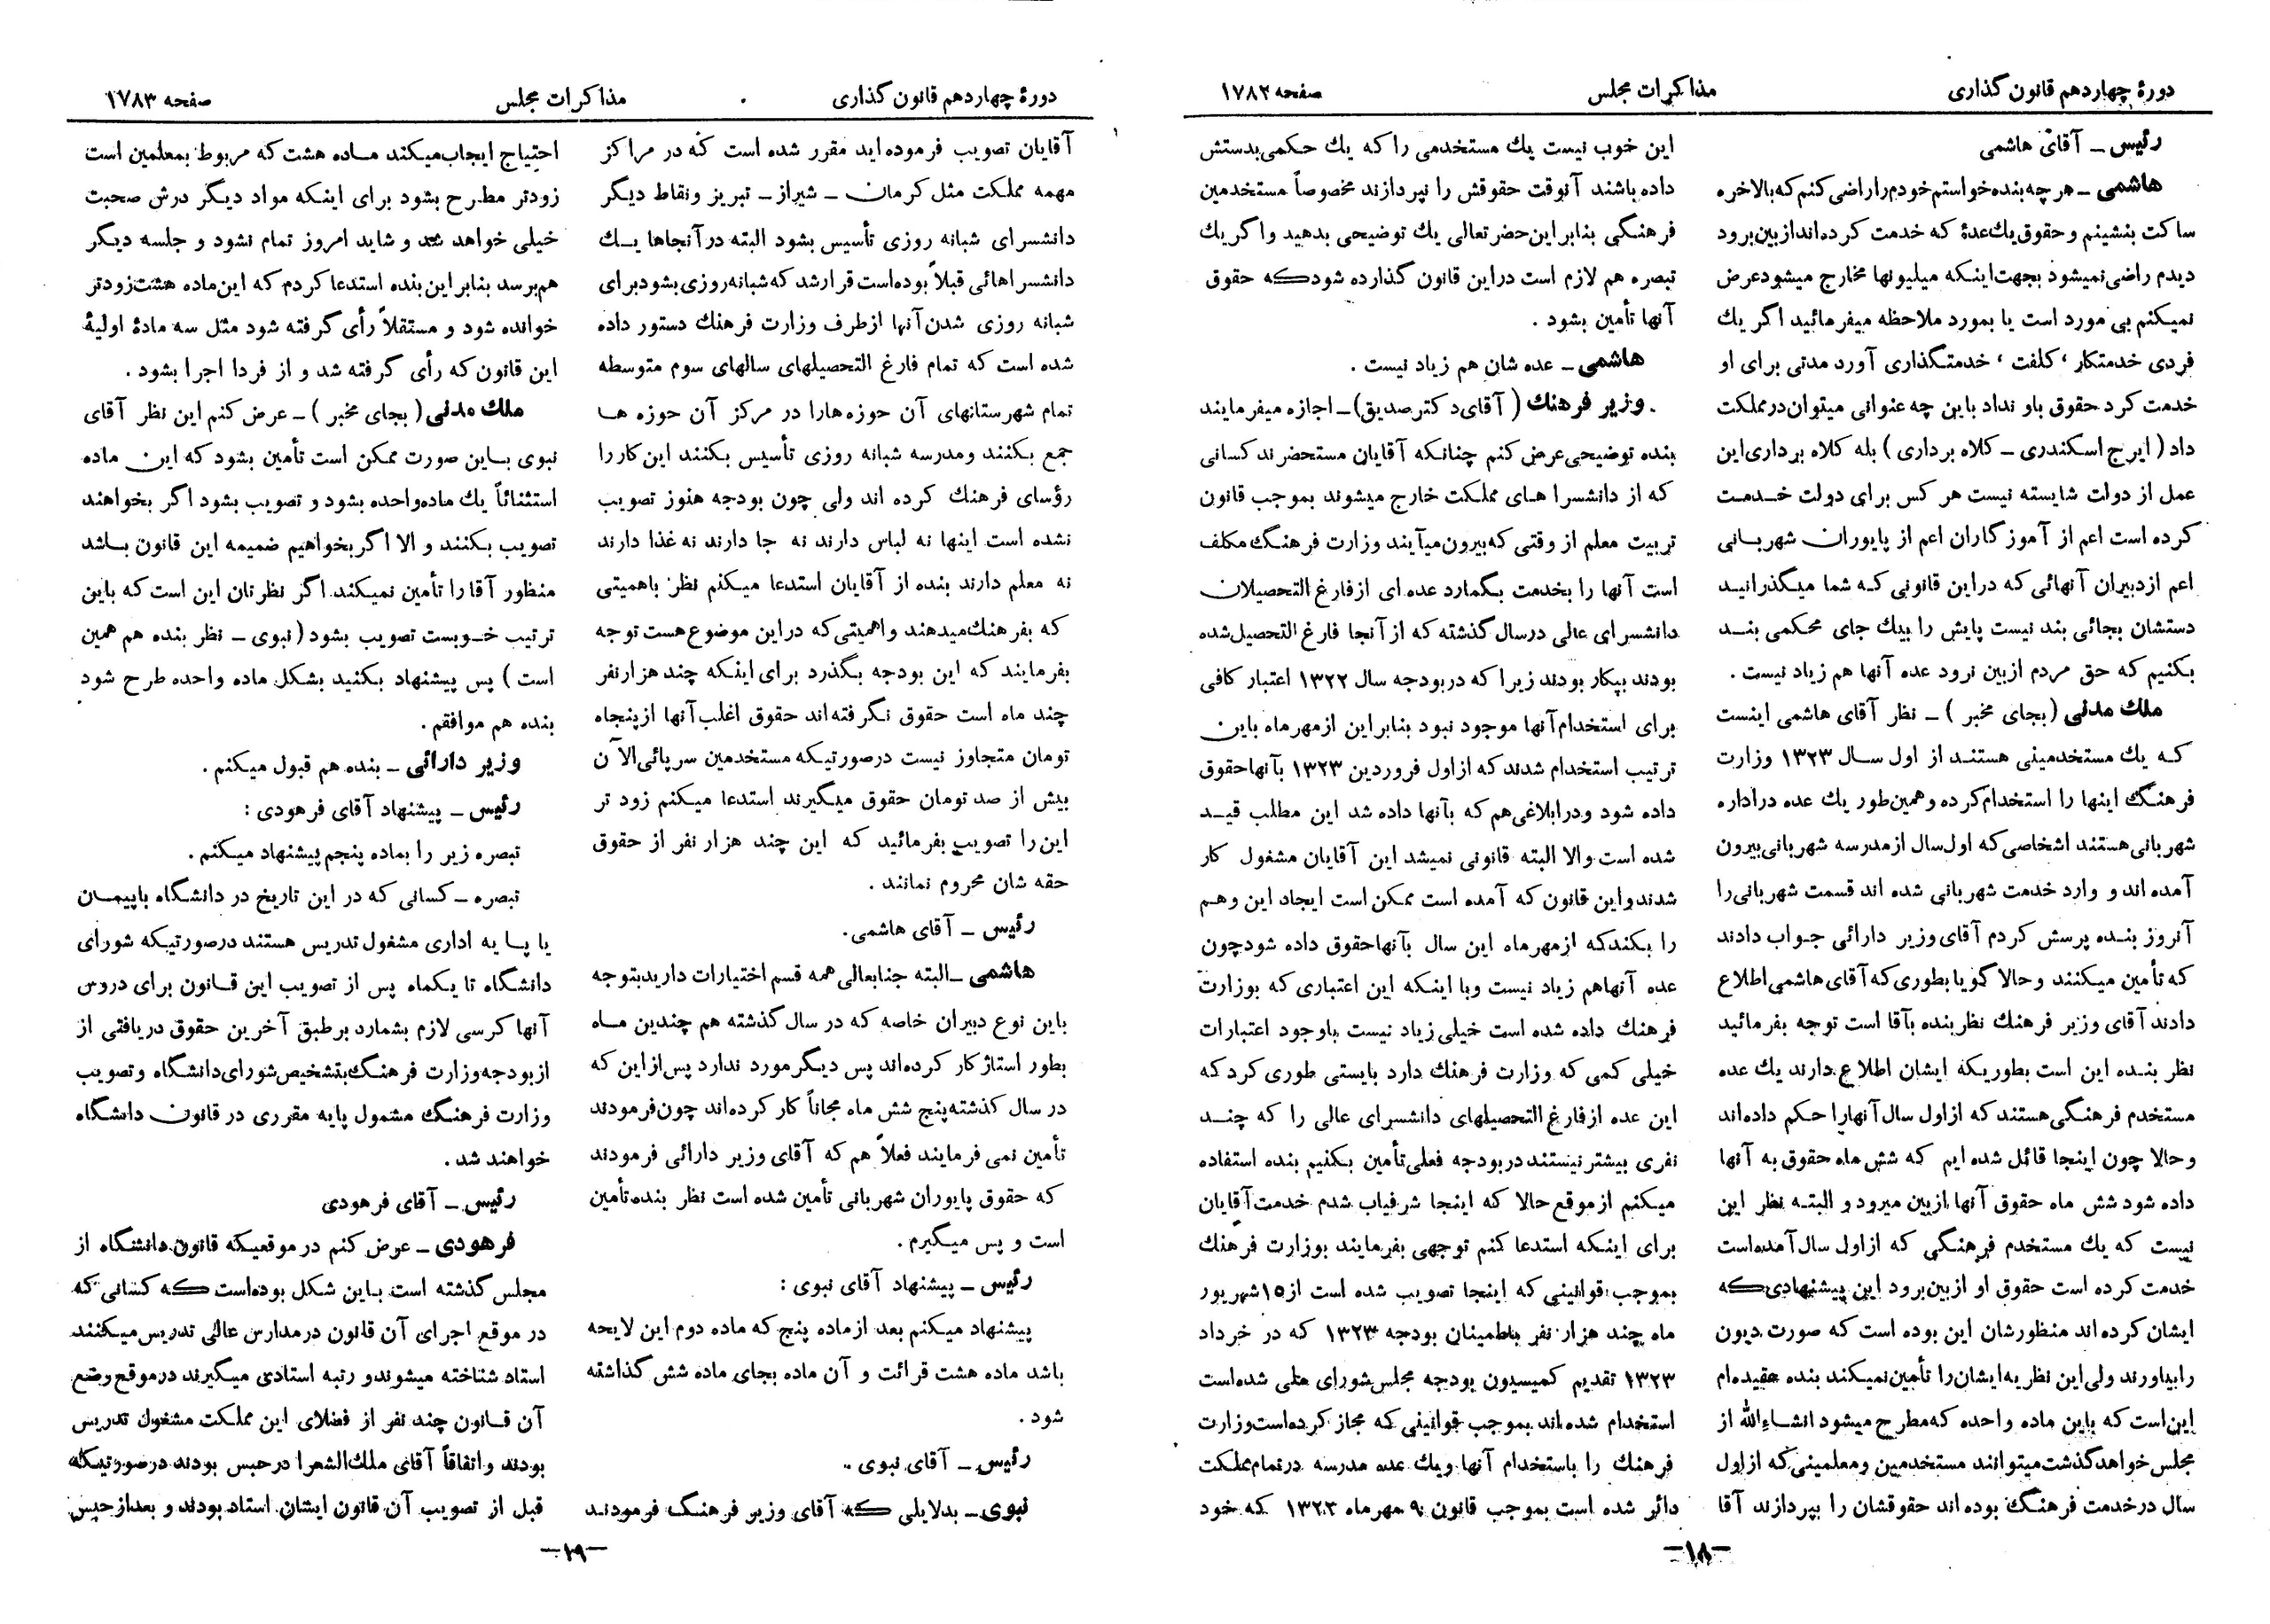 دورهٔ چهاردهم قانون گذاری
مذاکرات مجلس
صفحه ۱۷۸۲
رئیس ــ آقای هاشمی
هاشمی ــ هر چه بنده خواستم خودم را راضی کنم که بالاخره
ساکت بنشینم و حقوق یك عدهٔ که خدمت کرده‌اند از بین برود
دیدم راضی نمیشود بجهت اینکه میلیونها مخارج میشود عرض
نمیکنم بی مورد است یا بمورد ملاحظه میفرمائید اگر یك
فردی خدمتکار ، کلفت ، خدمتگذاری آورد مدتی برای او
خدمت کرد حقوق باو نداد باین چه عنوانی میتوان در مملکت
داد ( ایرج اسکندری ــ کلاه برداری ) بله کلاه برداری این
عمل از دولت شایسته نیست هر کس برای دولت خدمت
کرده است اعم از آموزگاران اعم از پایوران شهربانی
اعم از دبیران آنهائی که در این قانونی که شما میگذرانید
دستشان بجائی بند نیست پایش را بیك جای محکمی بند
بکنیم که حق مردم از بین نرود عده آنها هم زیاد نیست .
ملك مدنی ( بجای مخبر ) ــ نظر آقای هاشمی اینست
که یك مستخدمینی هستند از اول سال ۱۳۲۳ وزارت
فرهنگ اینها را استخدام کرده و همین‌طور یك عده در اداره
شهربانی هستند اشخاصی که اول سال از مدرسه شهربانی بیرون
آمده اند و وارد خدمت شهربانی شده اند قسمت شهربانی را
آنروز بنده پرسش کردم آقای وزیر دارائی جواب دادند
که تأمین میکنند و حالا گویا بطوری که آقای هاشمی اطلاع
دادند آقای وزیر فرهنك نظر بنده بآقا است توجه بفرمائید
نظر بنده این است بطوریکه ایشان اطلاع دارند یك عده
مستخدم فرهنگی هستند که از اول سال آنها را حکم داده‌اند
و حالا چون اینجا قائل شده ایم که شش ماه حقوق به آنها
داده شود شش ماه حقوق آنها از بین میرود و البته نظر این
نیست که یك مستخدم فرهنگی که از اول سال آمده‌است
خدمت کرده است حقوق او از بین برود این پیشنهادی که
ایشان کرده اند منظورشان این بوده است که صورت دیون
را بیاورند ولی این نظریه ایشان را تأمین نمیکند بنده عقیده‌ام
این‌است که باین ماده واحده که مطرح میشود انشاءالله از
مجلس خواهد گذشت میتوانند مستخدمین و معلمینی که از اول
سال در خدمت فرهنگ بوده اند حقوقشان را بپردازند آقا
این خوب نیست یك مستخدمی را که یك حکمی بدستش
داده باشند آنوقت حقوقش را نپردازند مخصوصاً مستخدمین
فرهنگی بنابراین حضرتعالی یك توضیحی بدهید و اگر یك
تبصره هم لازم است در این قانون گذارده شود که حقوق
آنها تأمین بشود .
هاشمی ــ عده شان هم زیاد نیست .
وزیر فرهنك ( آقای دکتر صدیق ) ــ اجازه میفرمایند
بنده توضیحی عرض کنم چنانکه آقایان مستحضرند کسانی
که از دانشسرا های مملکت خارج میشوند بموجب قانون
تربیت معلم از وقتی که بیرون میآیند وزارت فرهنگ مکلف
است آنها را بخدمت بگمارد عده ای از فارغ التحصیلان
دانشسرای عالی در سال گذشته که از آنجا فارغ التحصیل شده
بودند بیکار بودند زیرا که در بودجه سال ۱۳۲۲ اعتبار کافی
برای استخدام آنها موجود نبود بنابراین از مهر ماه باین
ترتیب استخدام شدند که از اول فروردین ۱۳۲۳ بآنها حقوق
داده شود و در ابلاغی هم که بآنها داده شد این مطلب قید
شده است والا البته قانونی نمیشد این آقایان مشغول کار
شدند و این قانون که آمده است ممکن است ایجاد این وهم
را بکند که از مهر ماه این سال بآنها حقوق داده شود چون
عده آنها هم زیاد نیست و با اینکه این اعتباری که بوزارت
فرهنك داده شده است خیلی زیاد نیست باوجود اعتبارات
خیلی کمی که وزارت فرهنك دارد بایستی طوری کرد که
این عده از فارغ التحصیلهای دانشسرای عالی را که چند
نفری بیشتر نیستند در بودجه فعلی تأمین بکنیم بنده استفاده
میکنم از موقع حالا که اینجا شرفیاب شدم خدمت آقایان
برای اینکه استدعا کنم توجهی بفرمایند بوزارت فرهنك
بموجب قوانینی که اینجا تصویب شده است از ۱۵ شهریور
ماه چند هزار نفر باطمینان بودجه ۱۳۲۳ که در خرداد
۱۳۲۳ تقدیم کمیسیون بودجه مجلس شورای ملی شده‌است
استخدام شده اند بموجب قوانینی که مجاز کرده‌است وزارت
فرهنك را باستخدام آنها و یك عده مدرسه در تمام مملکت
دائر شده است بموجب قانون ۹ مهر ماه ۱۳۲۳ که خود
ــ ۱۸ ــ
دورهٔ چهاردهم قانون گذاری
مذاکرات مجلس
صفحه ۱۷۸۳
آقایان تصویب فرموده اید مقرر شده است که در مراکز
مهمه مملکت مثل کرمان ــ شیراز ــ تبریز و نقاط دیگر
دانشسرای شبانه روزی تأسیس بشود البته در آنجاها یك
دانشسراهائی قبلاً بوده‌است قرار شد که شبانه روزی بشود برای
شبانه روزی شدن آنها از طرف وزارت فرهنك دستور داده
شده است که تمام فارغ التحصیلهای سالهای سوم متوسطه
تمام شهرستانهای آن حوزه هارا در مرکز آن حوزه ها
جمع بکنند و مدرسه شبانه روزی تأسیس بکنند این کار را
رؤسای فرهنك کرده اند ولی چون بودجه هنوز تصویب
نشده است اینها نه لباس دارند نه جا دارند نه غذا دارند
نه معلم دارند بنده از آقایان استدعا میکنم نظر باهمیتی
که بفرهنك میدهند و اهمیتی که در این موضوع هست توجه
بفرمایند که این بودجه بگذرد برای اینکه چند هزار نفر
چند ماه است حقوق نگرفته‌اند حقوق اغلب آنها از پنجاه
تومان متجاوز نیست در صورتیکه مستخدمین سرپائی الآن
بیش از صد تومان حقوق میگیرند استدعا میکنم زود تر
این را تصویب بفرمائید که این چند هزار نفر از حقوق
حقه شان محروم نمانند .
رئیس ــ آقای هاشمی.
هاشمی ــ البته جنابعالی همه قسم اختیارات دارید بتوجه
باین نوع دبیران خاصه که در سال گذشته هم چندین ماه
بطور استاژ کار کرده‌اند پس دیگر مورد ندارد پس از این که
در سال گذشته پنج شش ماه مجاناً کار کرده‌اند چون فرمودند
تأمین نمی فرمایند فعلاً هم که آقای وزیر دارائی فرمودند
که حقوق پایوران شهربانی تأمین شده است نظر بنده تأمین
است و پس میگیرم.
رئیس ــ پیشنهاد آقای نبوی :
پیشنهاد میکنم بعد از ماده پنج که ماده دوم این لایحه
باشد ماده هشت قرائت و آن ماده بجای ماده شش گذاشته
شود .
رئیس ــ آقای نبوی .
نبوی ــ بدلایلی که آقای وزیر فرهنگ فرمودند
احتیاج ایجاب میکند ماده هشت که مربوط بمعلمین است
زودتر مطرح بشود برای اینکه مواد دیگر درش صحبت
خیلی خواهد شد و شاید امروز تمام نشود و جلسه دیگر
هم برسد بنابراین بنده استدعا کردم که این ماده هشت زودتر
خوانده شود و مستقلاً رأی گرفته شود مثل سه مادهٔ اولیهٔ
این قانون که رأی گرفته شد و از فردا اجرا بشود .
ملك مدنی ( بجای مخبر ) ــ عرض کنم این نظر آقای
نبوی باین صورت ممکن است تأمین بشود که این ماده
استثنائاً یك ماده واحده بشود و تصویب بشود اگر بخواهند
تصویب بکنند و الا اگر بخواهیم ضمیمه این قانون باشد
منظور آقا را تأمین نمیکند اگر نظرتان این است که باین
ترتیب خوبست تصویب بشود ( نبوی ــ نظر بنده هم همین
است ) پس پیشنهاد بکنید بشکل ماده واحده طرح شود
بنده هم موافقم .
وزیر دارائی ــ بنده هم قبول میکنم .
رئیس ــ پیشنهاد آقای فرهودی :
تبصره زیر را بماده پنجم پیشنهاد میکنم .
تبصره ــ کسانی که در این تاریخ در دانشگاه باپیمان
یا پایه اداری مشغول تدریس هستند در صورتیکه شورای
دانشگاه تا یکماه پس از تصویب این قانون برای دروس
آنها کرسی لازم بشمارد بر طبق آخرین حقوق دریافتی از
از بودجه وزارت فرهنگ بتشخیص شورای دانشگاه و تصویب
وزارت فرهنگ مشمول پایه مقرری در قانون دانشگاه
خواهند شد .
رئیس ــ آقای فرهودی
فرهودی ــ عرض کنم در موقعیکه قانون دانشگاه از
مجلس گذشته است باین شکل بوده‌است که کسانی که
در موقع اجرای آن قانون در مدارس عالی تدریس میکنند
استاد شناخته میشوند و رتبه استادی میگیرند در موقع وضع
آن قانون چند نفر از فضلای این مملکت مشغول تدریس
بودند و اتفاقاً آقای ملك الشعرا در حبس بودند در صورتیکه
قبل از تصویب آن قانون ایشان استاد بودند و بعد از حبس
ــ ۱۹ ــ